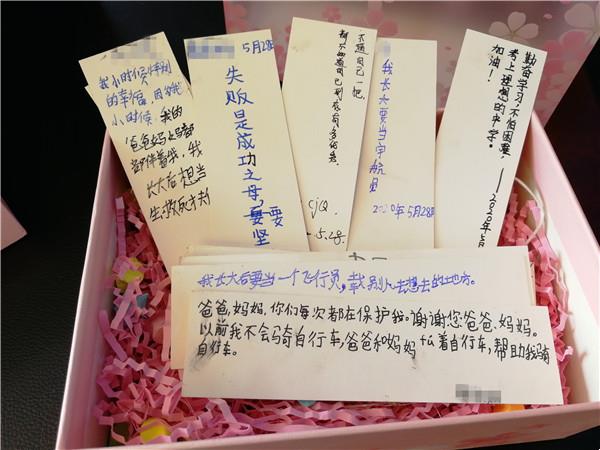 我小时候特别
的幸福,因为我
小时候,我的
爸爸妈妈
都伴着我,我
长大后想当
生,
5月28日
失败是成功之母,要坚
不逼自己一把,
都不知道自己到底有多优秀。
cjQ
5.28.
我长大要当宇航员
2020年5月28日
勤奋学习,不怕困难,
考上理想的中学。
加油!
——2020年5月
我长大后要当一个飞行员,载别人去想去的地方。
爸爸,妈妈,你们每次都在保护我。谢谢您爸爸、妈妈。
以前我不会骑自行车,爸爸和妈妈着自行车,帮助我骑
自行车。